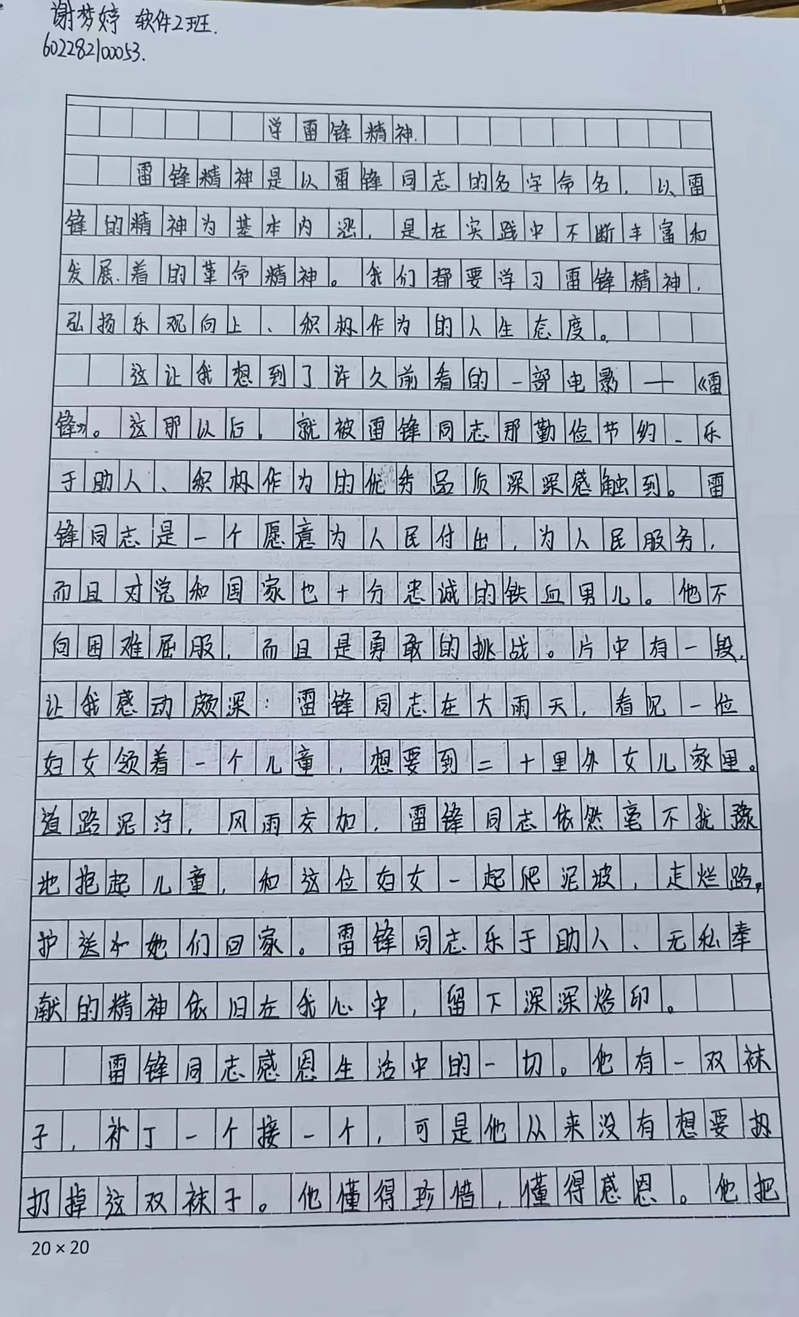 谢梦婷 软件2班.
602282100053.
学雷锋精神.
雷锋精神是以雷锋同志的名字命名，以雷
锋的精神为基本内涵，是在实践中不断丰富和
发展着的革命精神。我们都要学习雷锋精神，
弘扬乐观向上、积极作为的人生态度。
这让我想到了许久前看的一部电影——《雷
锋》。这那以后，就被雷锋同志那勤俭节约、乐
于助人、积极作为的优秀品质深深感触到。雷
锋同志是一个愿意为人民付出，为人民服务，
而且对党和国家也十分忠诚的铁血男儿。他不
向困难屈服，而且是勇敢的挑战。片中有一段，
让我感动颇深：雷锋同志在大雨天，看见一位
妇女领着一个儿童，想要到二十里外女儿家里。
道路泥泞，风雨交加，雷锋同志依然毫不犹豫
地抱起儿童，和这位妇女一起爬泥波，走烂路，
护送她们回家。雷锋同志乐于助人、无私奉
献的精神依旧在我心中，留下深深烙印。
雷锋同志感恩生活中的一切。他有一双袜
子，补丁一个接一个，可是他从来没有想要扔
扔掉这双袜子。他懂得珍惜，懂得感恩。他把
20×20